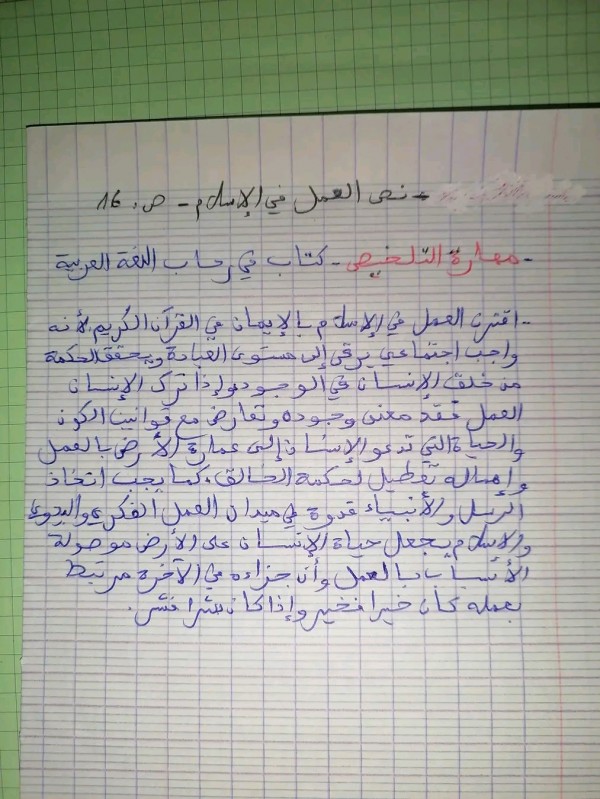 - نص العمل في الإسلام - ص: 16
- مهارة التلخيص - كتاب في رحاب اللغة العربية
- اقترن العمل في الإسلام بالإيمان في القرآن الكريم لأنه
واجب اجتماعي يرقى إلى مستوى العبادة ويحقق الحكمة
من خلق الإنسان في الوجود وإذا ترك الإنسان
العمل فقد معنى وجوده وتعارض مع قوانين الكون
والحياة التي تدعو الإنسان إلى عمارة الأرض بالعمل
وإهماله تعطيل لحكمة الخالق، كما يجب اتخاذ
الرسل والأنبياء قدوة في ميدان العمل الفكري واليدوي
والإسلام يجعل حياة الإنسان على الأرض موصولة
الأسباب بالعمل وأن جزاءه في الآخرة مرتبط
بعمله كان خيرا فخير وإذا كان شرا فشر.